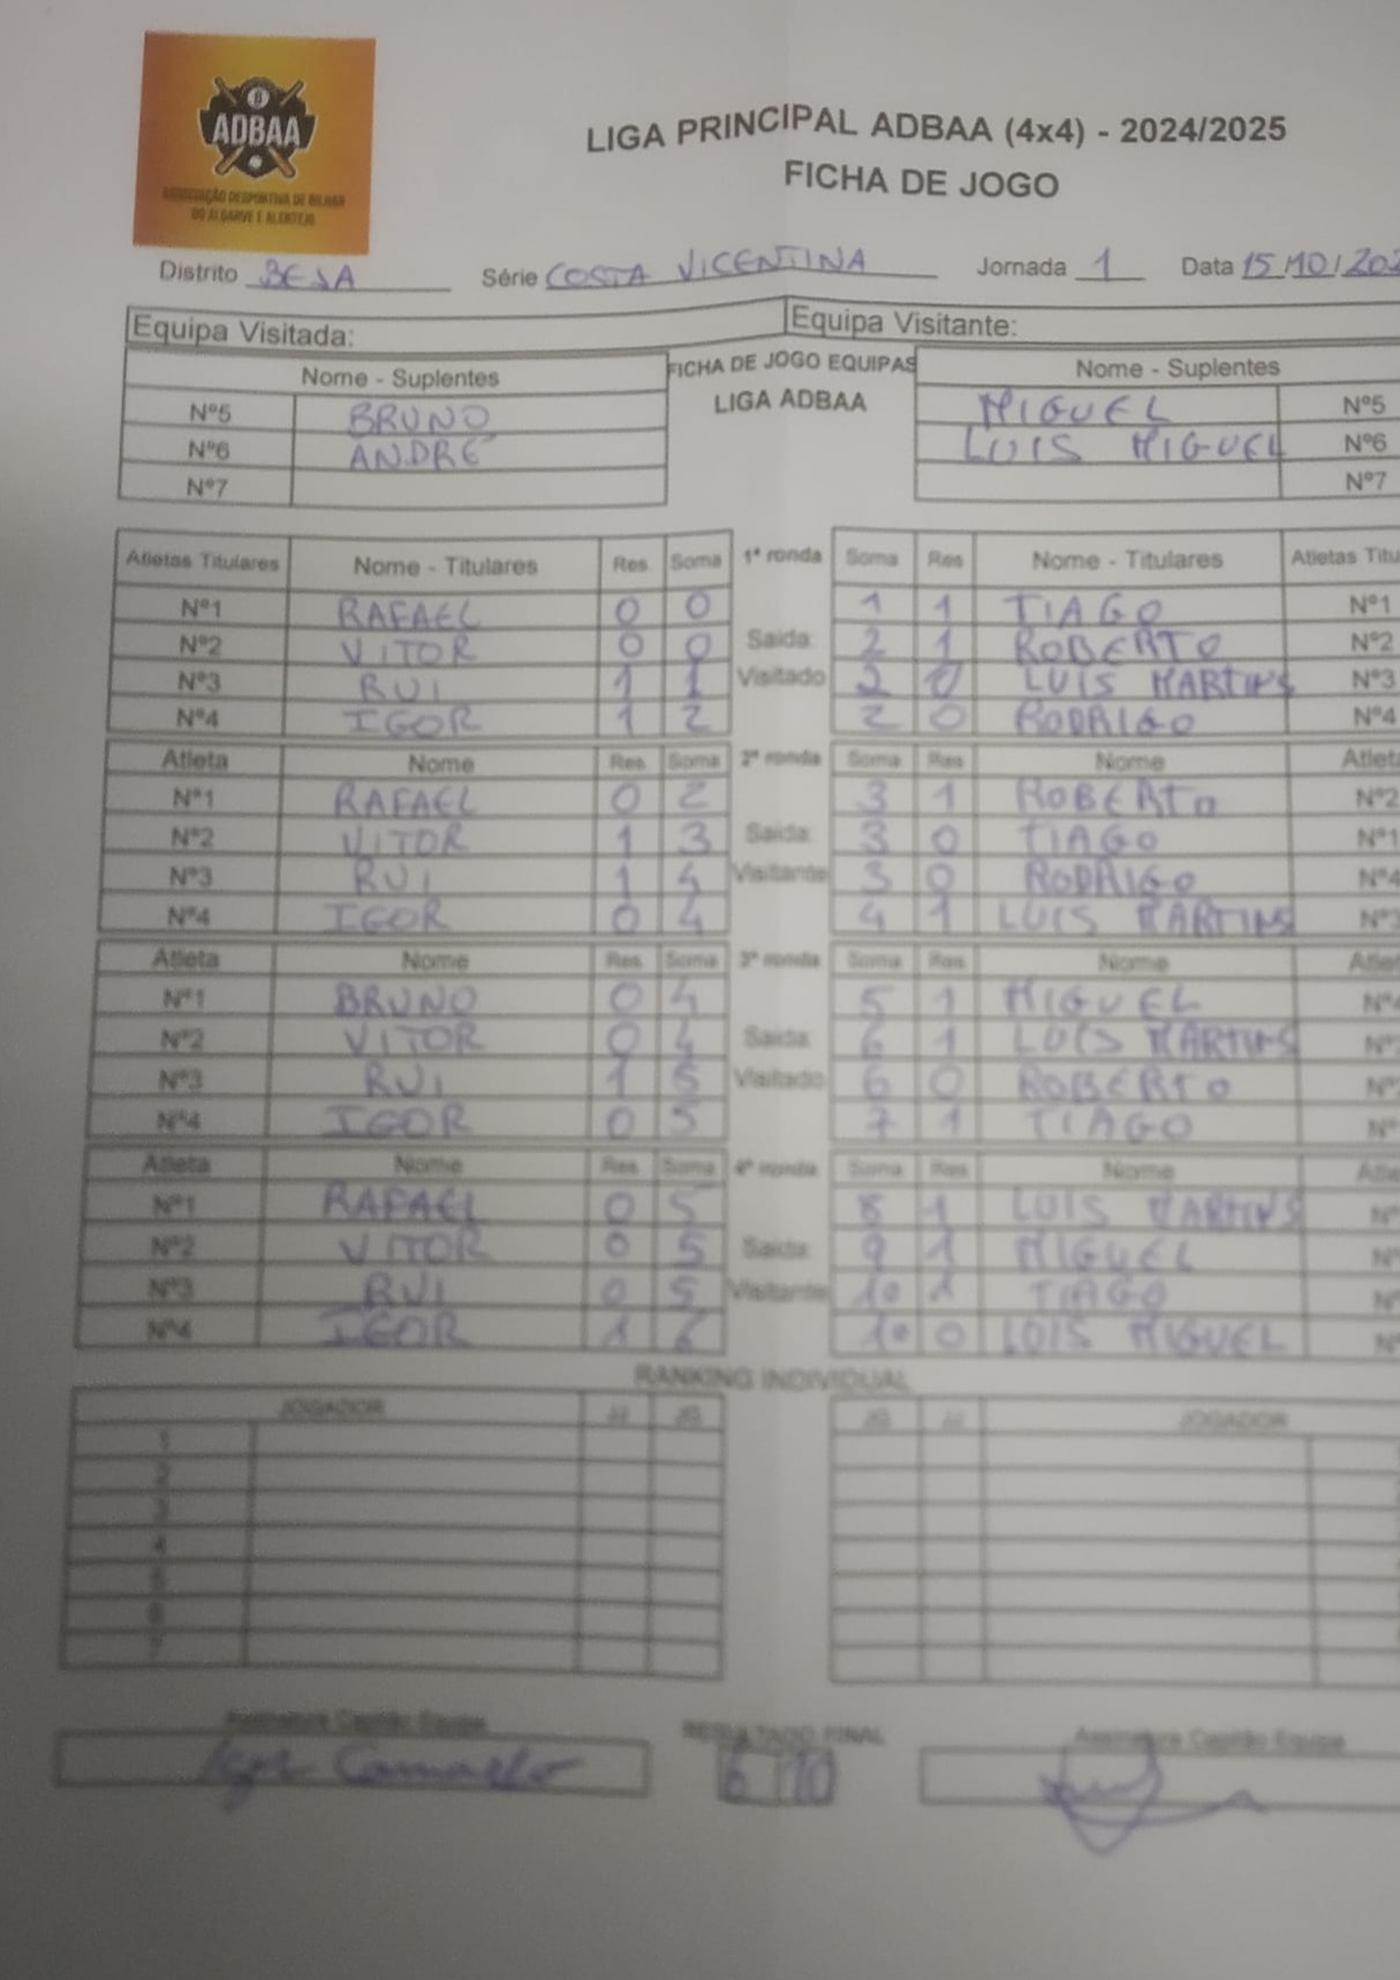 ADBAA
ASSOCIAÇÃO DESPORTIVA DE BILHAR
DO ALGARVE E ALENTEJO
LIGA PRINCIPAL ADBAA (4x4) - 2024/2025
FICHA DE JOGO
Distrito BEJA Série COSTA VICENTINA Jornada 1 Data 15/10/202
Equipa Visitada: Equipa Visitante:
Nome - Suplentes FICHA DE JOGO EQUIPAS Nome - Suplentes
LIGA ADBAA
Nº5 BRUNO MIGUEL Nº5
Nº6 ANDRÉ LUIS MIGUEL Nº6
Nº7 Nº7
Atletas Titulares Nome - Titulares Res Soma 1ª ronda Soma Res Nome - Titulares Atletas Titu
Nº1 RAFAEL 0 0 1 1 TIAGO Nº1
Nº2 VITOR 0 0 Saida 2 1 ROBERTO Nº2
Nº3 RUI 1 1 Visitado 2 0 LUIS MARTINS Nº3
Nº4 IGOR 1 2 2 0 RODRIGO Nº4
Atleta Nome Res Soma 2ª ronda Soma Res Nome Atleta
Nº1 RAFAEL 0 2 3 1 ROBERTO Nº2
Nº2 VITOR 1 3 Saida 3 0 TIAGO Nº1
Nº3 RUI 1 4 Visitante 3 0 RODRIGO Nº4
Nº4 IGOR 0 4 4 1 LUIS MARTINS Nº
Atleta Nome Res Soma 3ª ronda Soma Res Nome Atlet
Nº1 BRUNO 0 4 5 1 MIGUEL Nº
Nº2 VITOR 0 4 Saida 6 1 LUIS MARTINS Nº
Nº3 RUI 1 5 Visitado 6 0 ROBERTO Nº
Nº4 IGOR 0 5 7 1 TIAGO Nº
Atleta Nome Res Soma 4ª ronda Soma Res Nome Atle
Nº1 RAFAEL 0 5 8 1 LUIS MARTINS Nº
Nº2 VITOR 0 5 Saida 9 1 MIGUEL Nº
Nº3 RUI 0 5 Visitante 10 1 TIAGO Nº
Nº4 IGOR 1 6 10 0 LUIS MIGUEL Nº
RANKING INDIVIDUAL
JOGADOR JJ JG JG JJ JOGADOR
1
2
3
4
5
6
7
Assinatura Capitão Equipa RESULTADO FINAL Assinatura Capitão Equipa
Igor 6 10